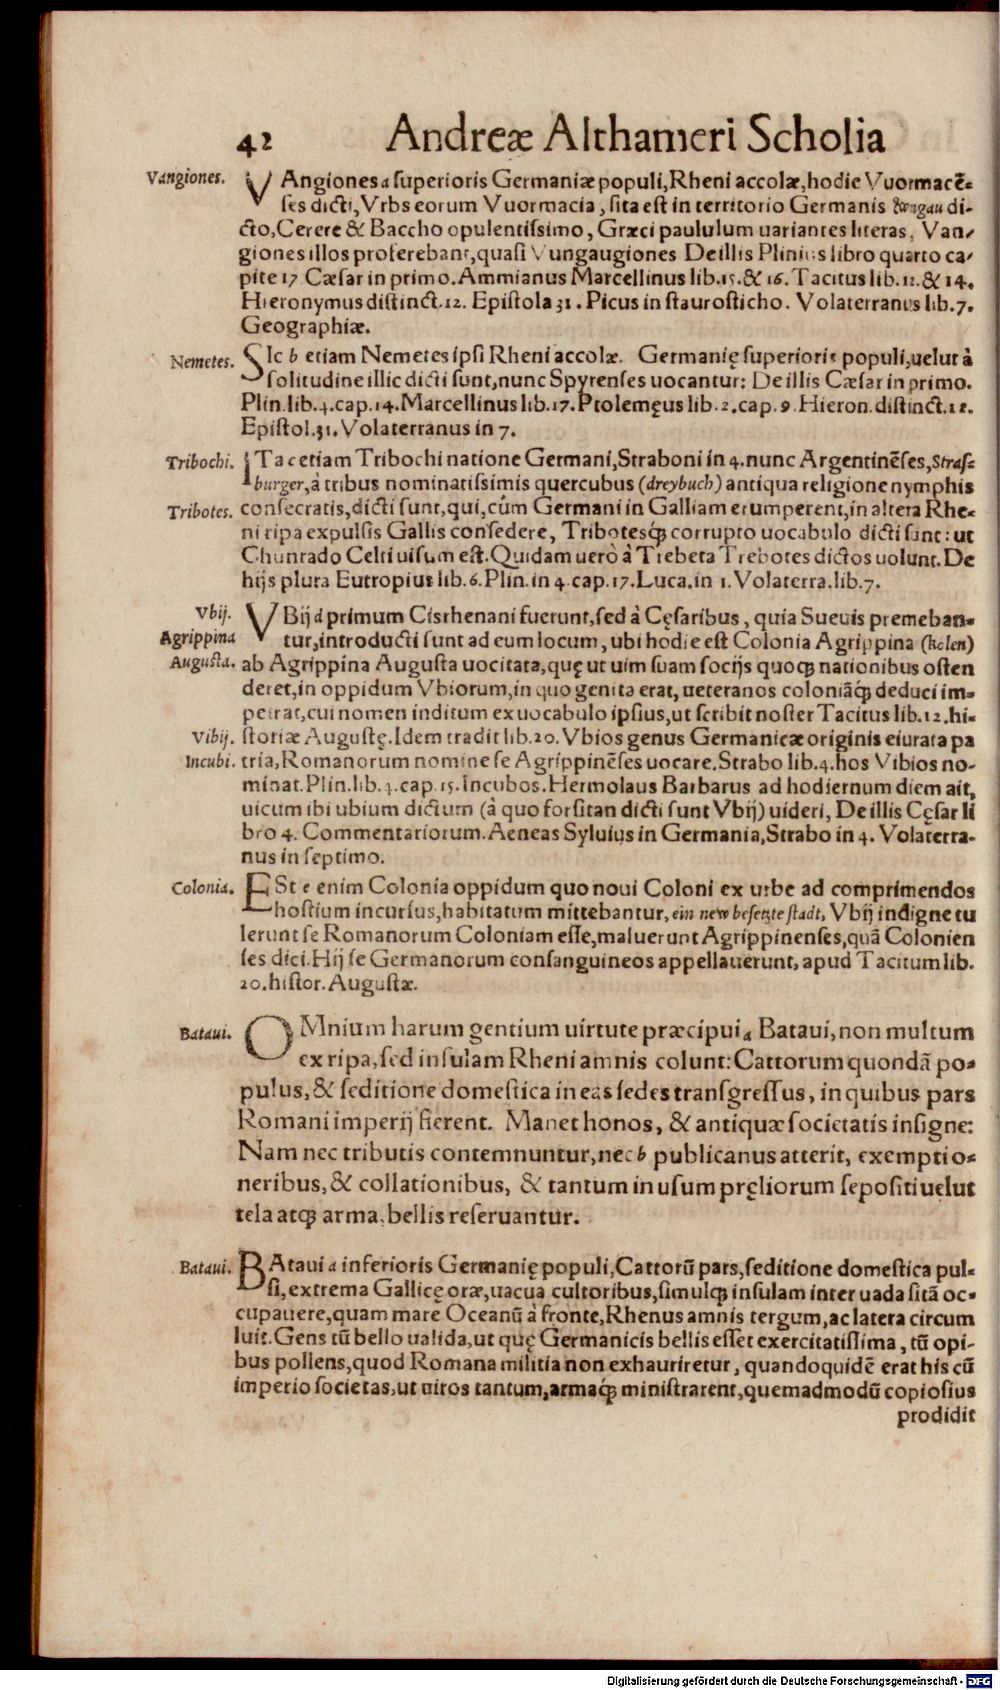 42 Andreæ Althameri Scholia
Vangiones.
VAngiones a superioris Germaniæ populi, Rheni accolæ, hodie Vuormacẽ-
ses dicti, Vrbs eorum Vuormacia, sita est in territorio Germanis di-
cto, Cerere & Baccho opulentissimo, Græci paululum uariantes literas, Van-
giones illos proferebant, quasi Vungaugiones De illis Plinius libro quarto ca-
pite 17 Cæsar in primo. Ammianus Marcellinus lib. 15. & 16. Tacitus lib. 12. & 14.
Hieronymus distinct. 12. Epistola 31. Picus in staurosticho. Volaterranus lib. 7.
Geographiæ.
Nemetes.
SIc b etiam Nemetes ipsi Rheni accolæ. Germanię superioris populi, uelut à
solitudine illic dicti sunt, nunc Spyrenses uocantur: De illis Cæsar in primo.
Plin. lib. 4. cap. 14. Marcellinus lib. 17. Ptolemęus lib. 2. cap. 9. Hieron. distinct. 12.
Epistol. 31. Volaterranus in 7.
Tribochi.
ITa c etiam Tribochi natione Germani, Straboni in 4. nunc Argentinẽses, Stras-
burger, à tribus nominatissimis quercubus (dreybuch) antiqua religione nymphis
Tribotes.
consecratis, dicti sunt, qui, cùm Germani in Galliam erumperent, in altera Rhe-
ni ripa expulsis Gallis consedere, Tribotesq́; corrupto uocabulo dicti sint: ut
Chunrado Celti uisum est. Quidam uerò à Trebeta Trebotes dictos uolunt. De
hijs plura Eutropius lib. 6. Plin. in 4. cap. 17. Luca. in 1. Volaterra. lib. 7.
Vbij.
VBij d primum Cisrhenani fuerunt, sed à Cęsaribus, quia Sueuis premeban-
Agrippina
tur, introducti sunt ad eum locum, ubi hodie est Colonia Agrippina (kölen)
Augusta.
ab Agrippina Augusta uocitata, quę ut uim suam socijs quoq; nationibus osten
deret, in oppidum Vbiorum, in quo genita erat, ueteranos coloniãq́; deduci im-
petrat, cui nomen inditum ex uocabulo ipsius, ut scribit noster Tacitus lib. 12. hi-
Vibij.
storiæ Augustę. Idem tradit lib. 20. Vbios genus Germanicæ originis eiurata pa
Incubi.
tria, Romanorum nomine se Agrippinẽses uocare. Strabo lib. 4. hos Vibios no-
minat. Plin. lib. 4. cap. 15. Incubos. Hermolaus Barbarus ad hodiernum diem ait,
uicum ibi ubium dictum (à quo forsitan dicti sunt Vbij) uideri, De illis Cęsar li
bro 4. Commentariorum. Aeneas Syluius in Germania, Strabo in 4. Volaterra-
nus in septimo.
Colonia.
ESt e enim Colonia oppidum quo noui Coloni ex urbe ad comprimendos
hostium incursus, habitatum mittebantur, ein new besetzte stadt, Vbij indigne tu
lerunt se Romanorum Coloniam esse, maluerunt Agrippinenses, quã Colonien
ses dici. Hij se Germanorum consanguineos appellauerunt, apud Tacitum lib.
20. histor. Augustæ.
Bataui.
OMnium harum gentium uirtute præcipui a Bataui, non multum
ex ripa, sed insulam Rheni amnis colunt: Cattorum quondã po-
pulus, & seditione domestica in eas sedes transgressus, in quibus pars
Romani imperij fierent. Manet honos, & antiquæ societatis insigne:
Nam nec tributis contemnuntur, nec b publicanus atterit, exemptio-
neribus, & collationibus, & tantum in usum pręliorum sepositi uelut
tela atq; arma, bellis reseruantur.
Bataui.
BAtaui a inferioris Germanię populi, Cattorũ pars, seditione domestica pul-
si, extrema Gallicę oræ, uacua cultoribus, simulq; insulam inter uada sitã oc-
cupauere, quam mare Oceanũ à fronte, Rhenus amnis tergum, ac latera circum
luit. Gens tũ bello ualida, ut quę Germanicis bellis esset exercitatissima, tũ opi-
bus pollens, quod Romana militia non exhauriretur, quandoquidẽ erat his cũ
imperio societas, ut uiros tantum, armaq́; ministrarent, quemadmodũ copiosius
prodidit
Digitalisierung gefördert durch die Deutsche Forschungsgemeinschaft - DFG